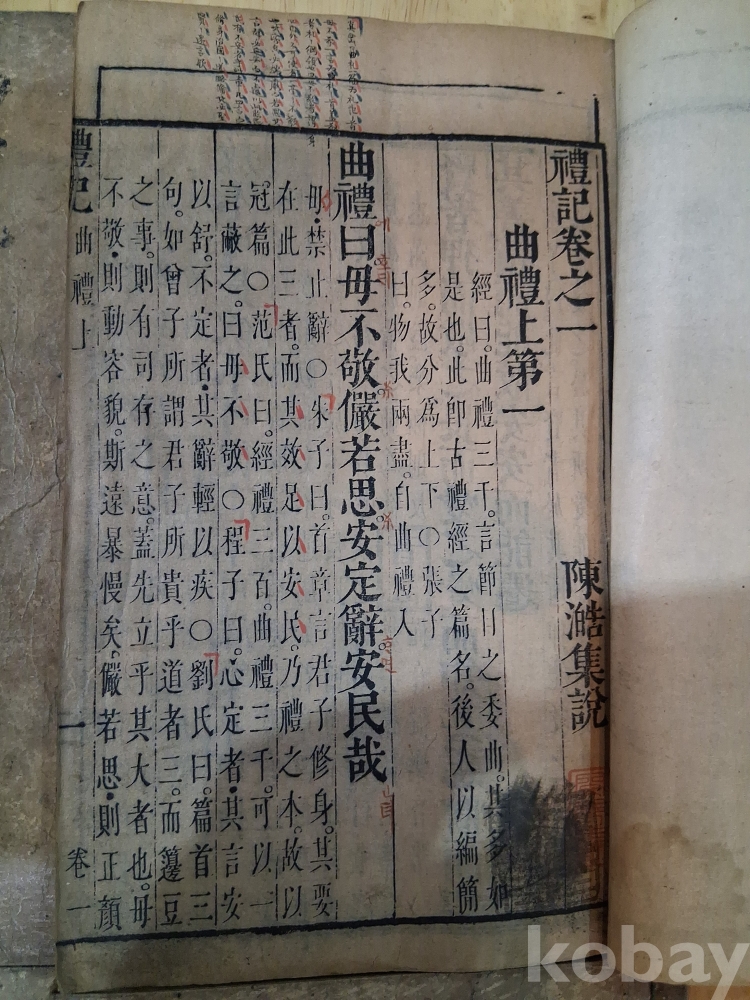 禮記卷之一
陳澔集說
曲禮上第一
經曰。曲禮三千。言節目之委曲。其多如
是也。此卽古禮經之篇名。後人以編簡
多。故分爲上下〇張子
曰。物我兩盡。自曲禮入
曲禮曰。毋不敬。儼若思。安定辭。安民哉
毋。禁止辭〇朱子曰。首章言君子修身。其要
在此三者。而其效足以安民。乃禮之本。故以
冠篇〇范氏曰。經禮三百。曲禮三千。可以一
言蔽之。曰毋不敬〇程子曰。心定者。其言安
以舒。不定者。其辭輕以疾〇劉氏曰。篇首三
句。如曾子所謂君子所貴乎道者三。而籩豆
之事。則有司存之意。蓋先立乎其大者也。毋
不敬。則動容貌。斯遠暴慢矣。儼若思。則正顏
禮記 曲禮上 一 卷一
kobay